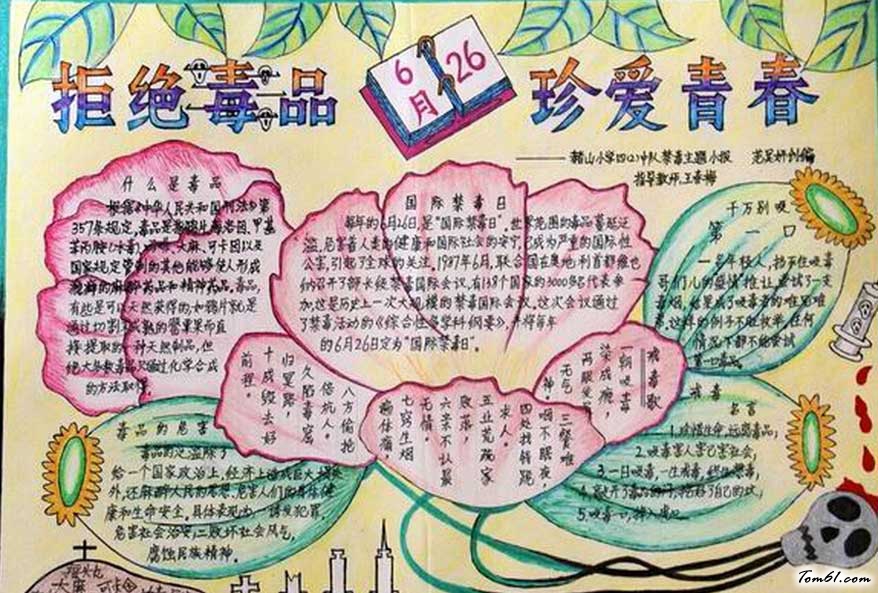 拒绝毒品
6月26
珍爱青春
小学四(2)中队禁毒主题小报
指导教师:王春梅
什么是毒品
根据《中华人民共和国刑法》第
357条规定,毒品是指鸦片、海洛因、甲基
苯丙胺(冰毒)、吗啡、大麻、可卡因以及
国家规定管制的其他能够使人形成
瘾癖的麻醉药品和精神药品。毒品,
有些是可以天然获得的,如鸦片就是
通过切割未成熟的罂粟果而直
接提取的一种天然制品,但
绝大多数毒品只能通过化学合成
的方法取得。
国际禁毒日
每年的6月26日,是"国际禁毒日"。世界范围的毒品蔓延泛
滥,危害着人类的健康和国际社会的安宁,已成为严重的国际性
公害,引起了全球的关注。1987年6月,联合国在奥地利首都维也
纳召开了部长级禁毒国际会议,有138个国家的3000多名代表参
加,这是历史上一次大规模的禁毒国际会议,这次会议通过
了禁毒活动的《综合性多学科纲要》,并将每年
的6月26日定为"国际禁毒日"。
千万别吸
第一口
一名年轻人,挡不住吸毒
哥们儿的盛情推让,尝试了一支
毒烟,结果成了吸毒者的难兄难
弟,这样的例子不胜枚举,任何
情况下都不能尝试
第一口毒品。
戒毒歌
一朝吸毒
染成瘾,
再服受
神。
无气
三餐难
咽不眠夜,
四处找钱跪
求人。
五业荒疏家
败落,
六亲不认最
无情。
七窍生烟
遍体痛,
八方偷抢
倍坑人。
久陷毒窟
归冥路,
十成毁去好
前程。
毒品的危害
毒品的泛滥除了
给一个国家政治上,经济上造成巨大损失
外,还麻醉人民的思想、危害人们的身体健
康和生命安全。具体表现为:一诱发犯罪,
危害社会治安;二败坏社会风气,
腐蚀民族精神。
戒毒
名言
1.珍惜生命,远离毒品;
2.吸毒害人害己害社会,
3.一日吸毒,一生戒毒,终生想毒;
5.吸毒一口,掉入虎口
大麻
Tom61.com